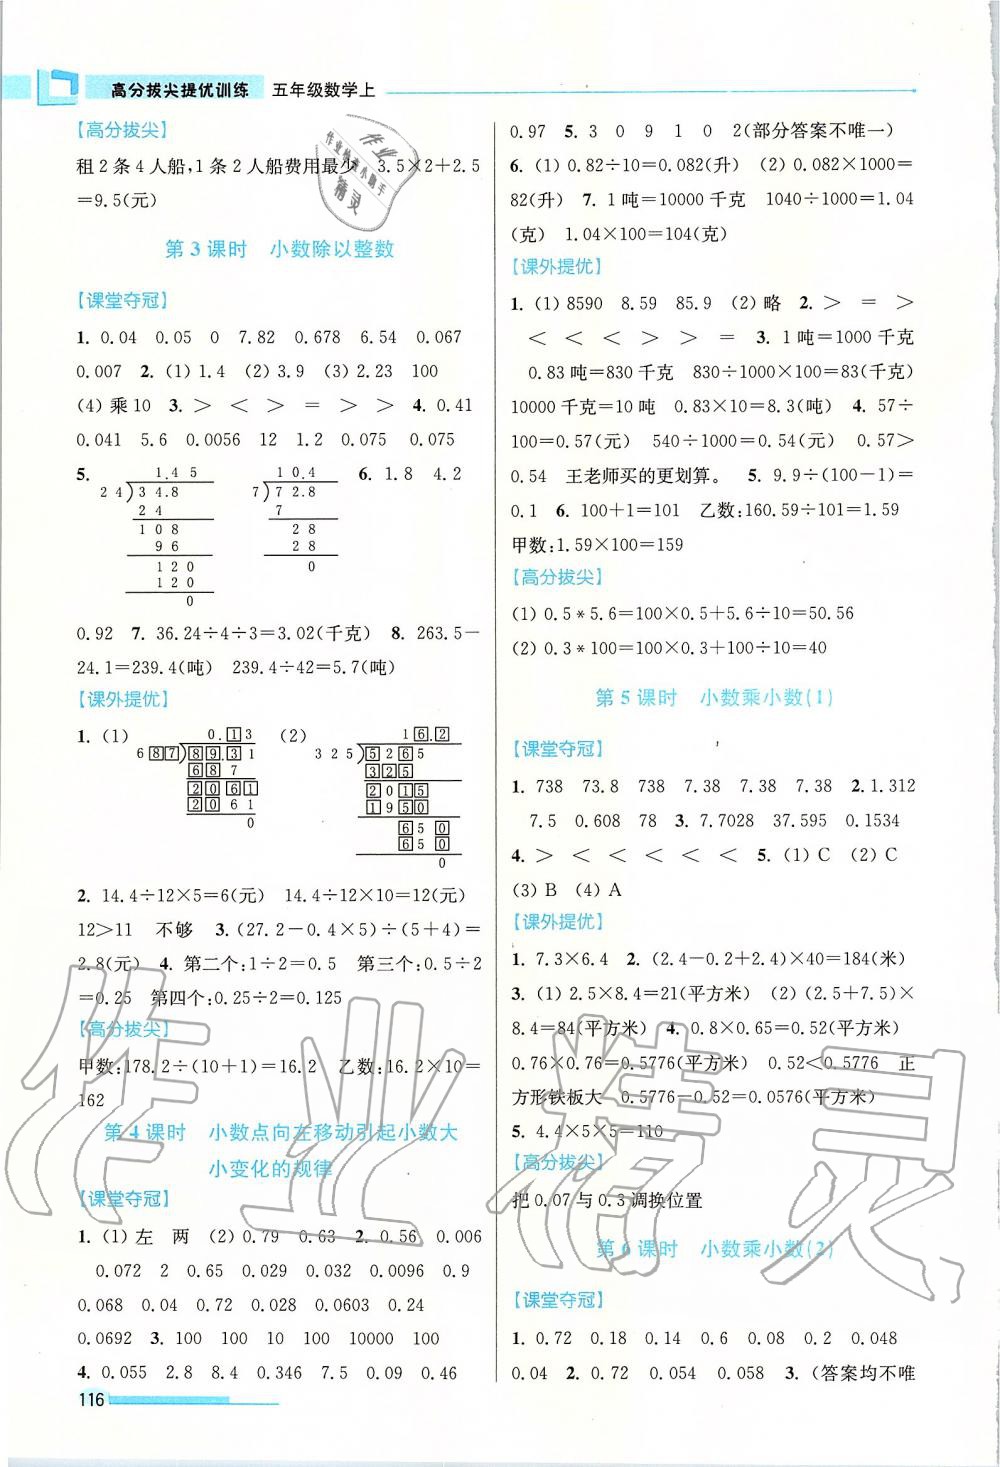 高分拔尖提优训练 五年级数学上
【高分拔尖】
租 2 条 4 人船,1 条 2 人船费用最少 3.5×2+2.5
=9.5(元)
第 3 课时 小数除以整数
【课堂夺冠】
1. 0.04 0.05 0 7.82 0.678 6.54 0.067
0.007 2. (1) 1.4 (2) 3.9 (3) 2.23 100
(4) 乘 10 3. > < > = > > 4. 0.41
0.041 5.6 0.0056 12 1.2 0.075 0.075
5.
1.4 5
2 4 3 4.8
2 4
1 0 8
9 6
1 2 0
1 2 0
0
1 0.4
7 7 2.8
7
2 8
2 8
0
6. 1.8 4.2
0.92 7. 36.24÷4÷3=3.02(千克) 8. 263.5-
24.1=239.4(吨) 239.4÷42=5.7(吨)
【课外提优】
1. (1)
0.1 3
6 8 7 8 9.3 1
6 8 7
2 0 6 1
2 0 6 1
0
(2)
1 6.2
3 2 5 5 2 6 5
3 2 5
2 0 1 5
1 9 5 0
6 5 0
6 5 0
0
2. 14.4÷12×5=6(元) 14.4÷12×10=12(元)
12>11 不够 3. (27.2-0.4×5)÷(5+4)=
2.8(元) 4. 第二个:1÷2=0.5 第三个:0.5÷2
=0.25 第四个:0.25÷2=0.125
【高分拔尖】
甲数:178.2÷(10+1)=16.2 乙数:16.2×10=
162
第 4 课时 小数点向左移动引起小数大
小变化的规律
【课堂夺冠】
1. (1) 左 两 (2) 0.79 0.63 2. 0.56 0.006
0.072 2 0.65 0.029 0.032 0.0096 0.9
0.068 0.04 0.72 0.028 0.0603 0.24
0.0692 3. 100 100 10 100 10000 100
4. 0.055 2.8 8.4 0.346 7.5 0.09 0.46
116
0.97 5. 3 0 9 1 0 2(部分答案不唯一)
6. (1) 0.82÷10=0.082(升) (2) 0.082×1000=
82(升) 7. 1 吨=1000 千克 1040÷1000=1.04
(克) 1.04×100=104(克)
【课外提优】
1. (1) 8590 8.59 85.9 (2) 略 2. > = >
< < < > > = 3. 1 吨=1000 千克
0.83 吨=830 千克 830÷1000×100=83(千克)
10000 千克=10 吨 0.83×10=8.3(吨) 4. 57÷
100=0.57(元) 540÷1000=0.54(元) 0.57>
0.54 王老师买的更划算。 5. 9.9÷(100-1)=
0.1 6. 100+1=101 乙数:160.59÷101=1.59
甲数:1.59×100=159
【高分拔尖】
(1) 0.5*5.6=100×0.5+5.6÷10=50.56
(2) 0.3*100=100×0.3+100÷10=40
第 5 课时 小数乘小数(1)
【课堂夺冠】
1. 738 73.8 738 7.38 7.38 7.38 2. 1.312
7.5 0.608 78 3. 7.7028 37.595 0.1534
4. > < < < < < 5. (1) C (2) C
(3) B (4) A
【课外提优】
1. 7.3×6.4 2. (2.4-0.2+2.4)×40=184(米)
3. (1) 2.5×8.4=21(平方米) (2) (2.5+7.5)×
8.4=84(平方米) 4. 0.8×0.65=0.52(平方米)
0.76×0.76=0.5776(平方米) 0.52<0.5776 正
方形铁板大 0.5776-0.52=0.0576(平方米)
5. 4.4×5×5=110
【高分拔尖】
把 0.07 与 0.3 调换位置
第 6 课时 小数乘小数(2)
【课堂夺冠】
1. 0.72 0.18 0.14 0.6 0.08 0.2 0.048
0.04 2. 0.72 0.054 0.058 3. (答案均不唯
作业精灵